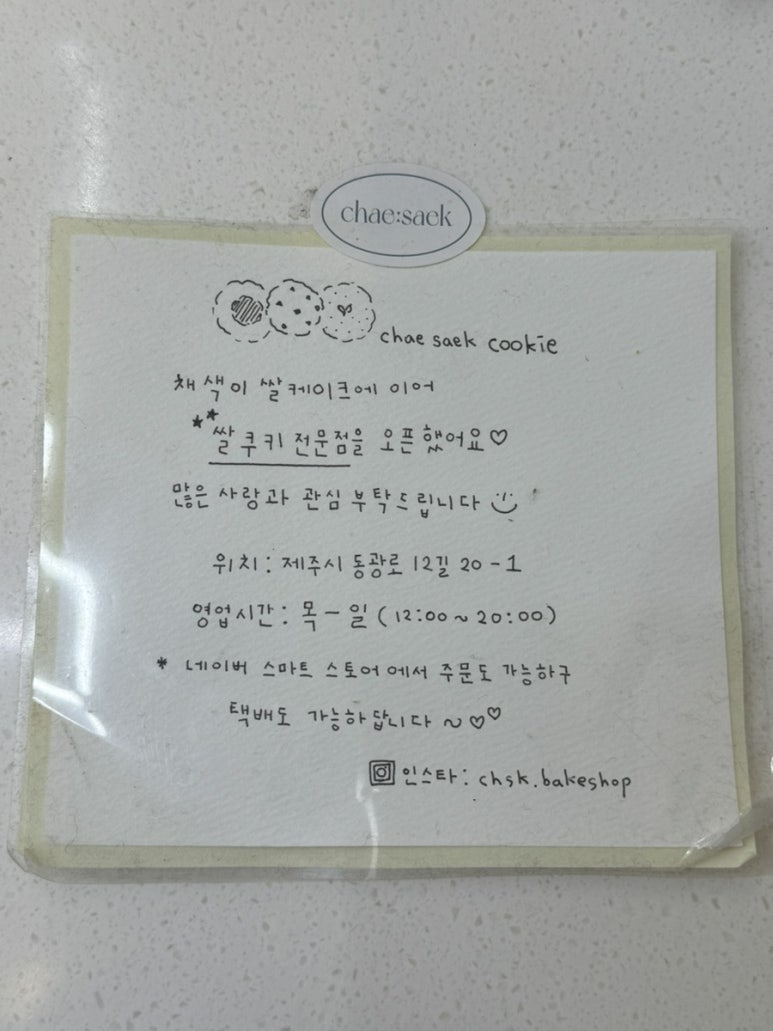 chae:saek
chae saek cookie
채색이 쌀케이크에 이어
**쌀 쿠키 전문점을 오픈했어요♡
많은 사랑과 관심 부탁드립니다
위치: 제주시 동광로 12길 20-1
영업시간: 목-일 (12:00~20:00)
* 네이버 스마트 스토어에서 주문도 가능하구
택배도 가능하답니다~♡♡
인스타: chsk.bakeshop